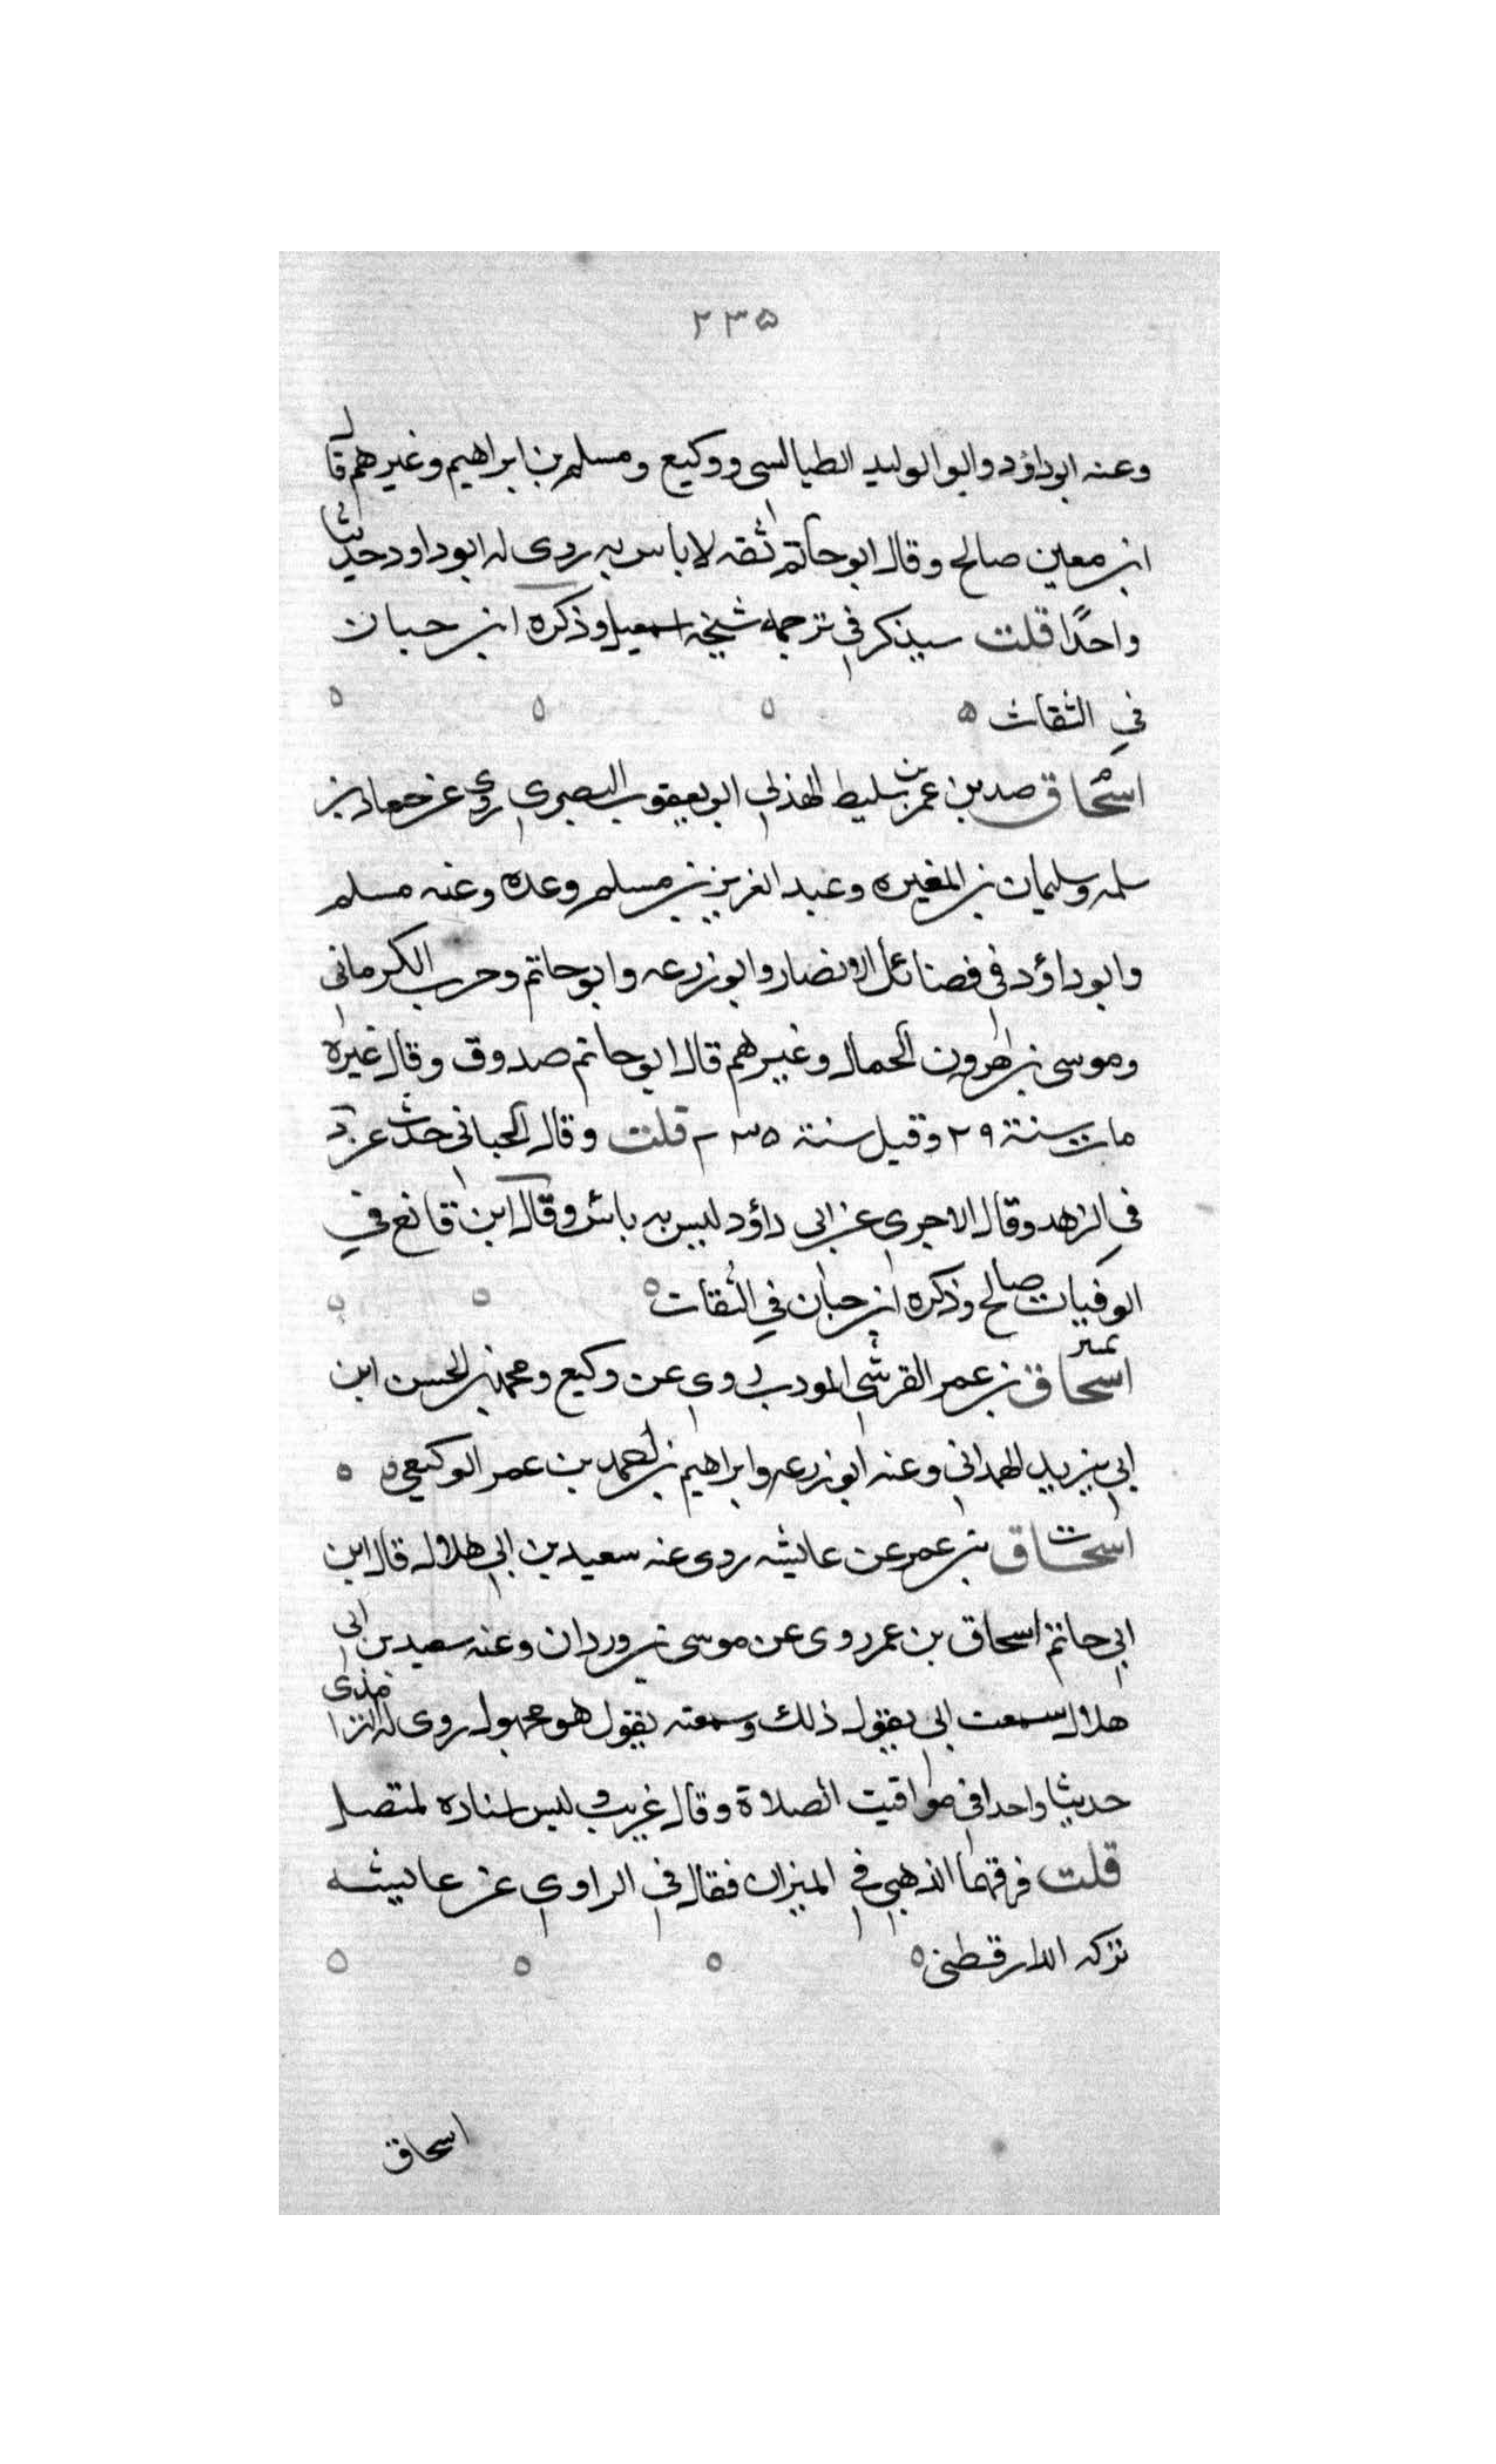 ٢٣٥
وعنه ابو داؤد وابو الوليد الطيالسى ووكيع ومسلم بن ابراهيم وغيرهم قال
ابن معين صالح وقال ابو حاتم ثقه لا باس به روى له ابو داود حديثا
واحدًا قلت سيذكر في ترجمه شيخه اسمعيل وذكره ابن حبان
في الثقات
اسحاق م صد بن عمر بن سليط الهذلي ابو يعقوب البصري روى عن حماد بن
سلمه وسليمان بن المغيره وعبد العزيز بن مسلم وعده وعنه مسلم
وابو داؤد في فضائل الانصار وابو زرعه وابو حاتم وحرب الكرماني
وموسى بن هرون الحمال وغيرهم قال ابو حاتم صدوق وقال غيره
مات سنة ٢٩ وقيل سنة ٢٣٥ قلت وقال الجياني حدث عن د
في الزهد وقال الاجري عن ابي داؤد ليس به باس وقال ابن قانع في
الوفيات صالح وذكره ابن حبان في الثقات
اسحاق تمييز بن عمر القرشي المودب روى عن وكيع ومحمد بن الحسن ابن
ابي يزيد الهمداني وعنه ابو زرعه وابراهيم بن احمد بن عمر الوكيعي
اسحاق ت بن عمر عن عايشه روى عنه سعيد بن ابي هلال قال ابن
ابي حاتم اسحاق بن عمر روى عن موسى بن وردان وعنه سعيد بن ابي
هلال سمعت ابي يقول ذلك وسمعته يقول هو مجهول روى له الترمذي
حديثا واحدا في مواقيت الصلاة وقال غريب وليس اسناده بمتصل
قلت فرقهما الذهبي في الميزان فقال في الراوي عن عايشه
تركه الدارقطني
اسحاق